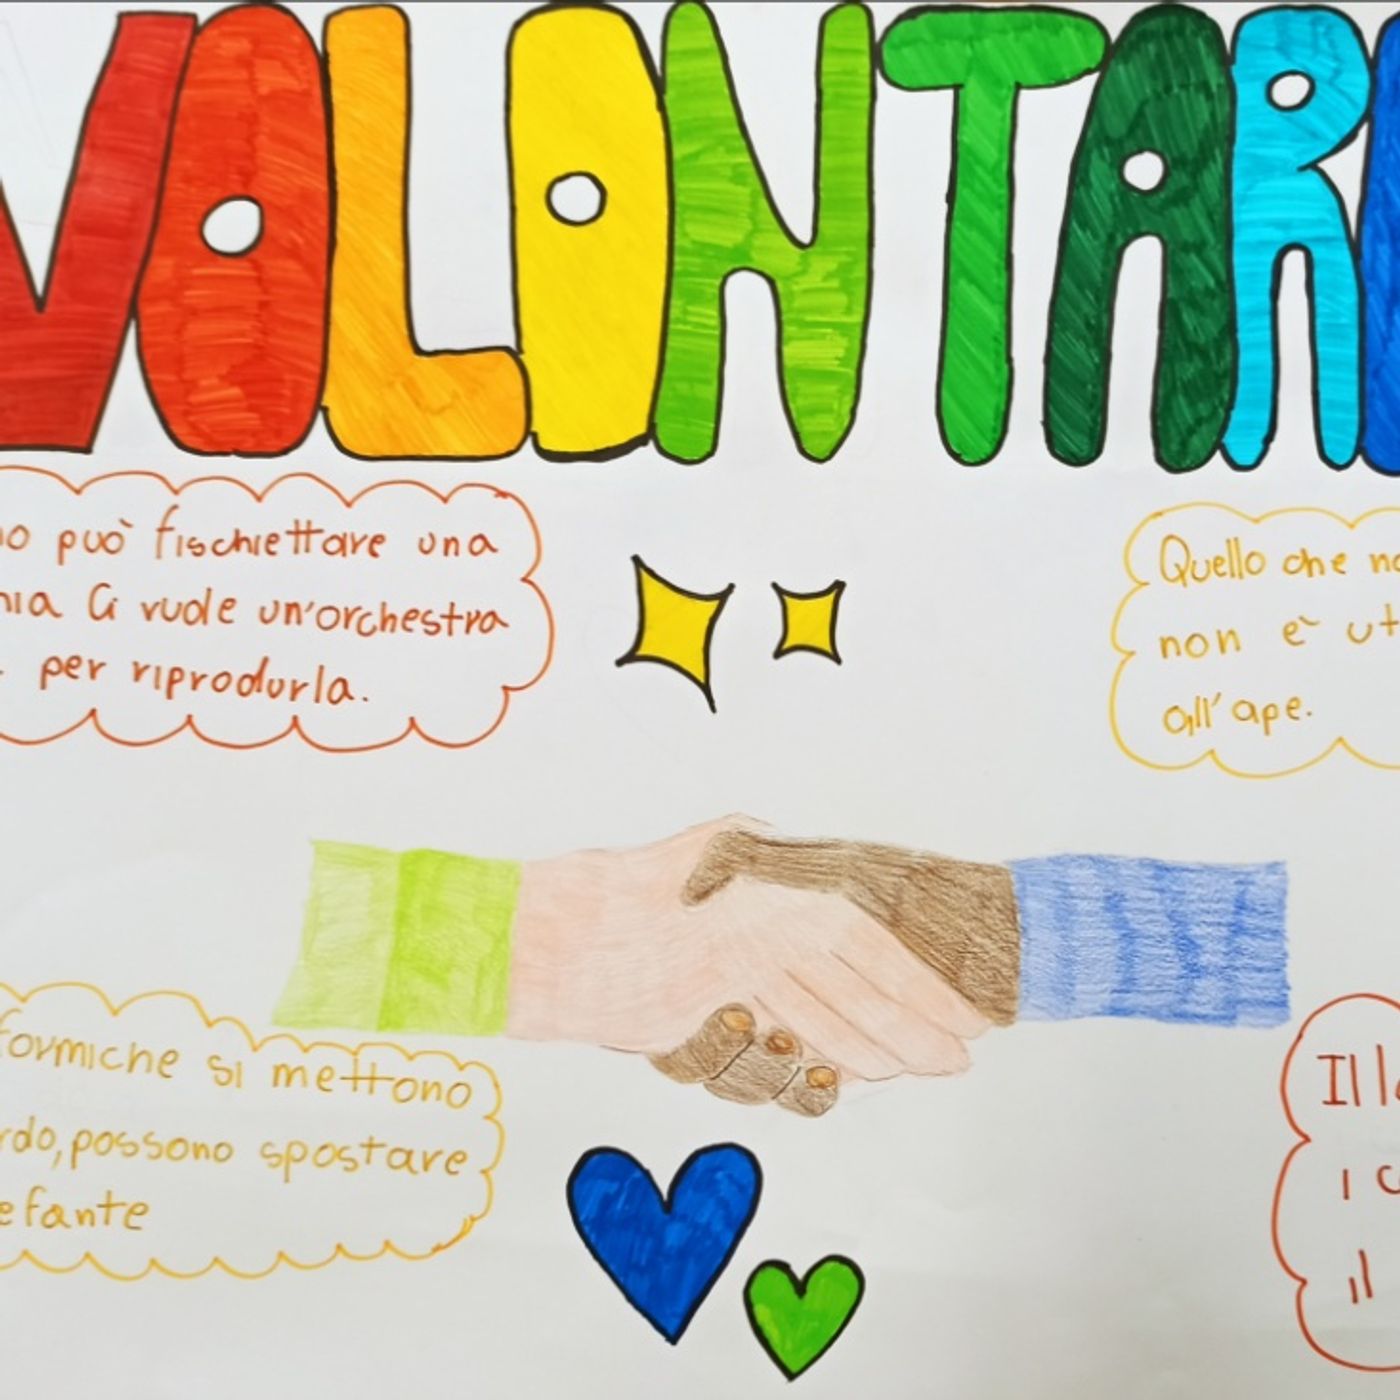 VOLONTARI
può fischiettare una
Ci vuole un'orchestra
per riprodurla.
Quello che
non è
all'ape.
formiche si mettono
possono spostare
Il
i
il